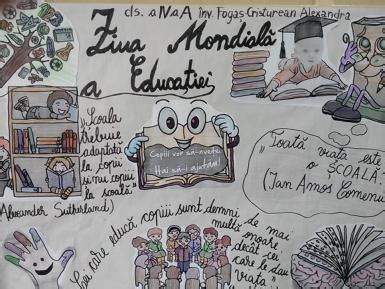 cls. a IV-a A înv. Fogaș-Cristurean Alexandra
Ziua Mondială
a Educației
"Școala
trebuie
adaptată
la copii
și nu copiii
la școală"
(Alexander Sutherland)
Copiii vor să-nvețe
Hai să-i ajutăm!
"Toată viața este
o ȘCOALĂ"
(Jan Amos Comenius
Cei care educă copiii sunt demni de mai
multă onoare
decât cei
care le dau
viața"